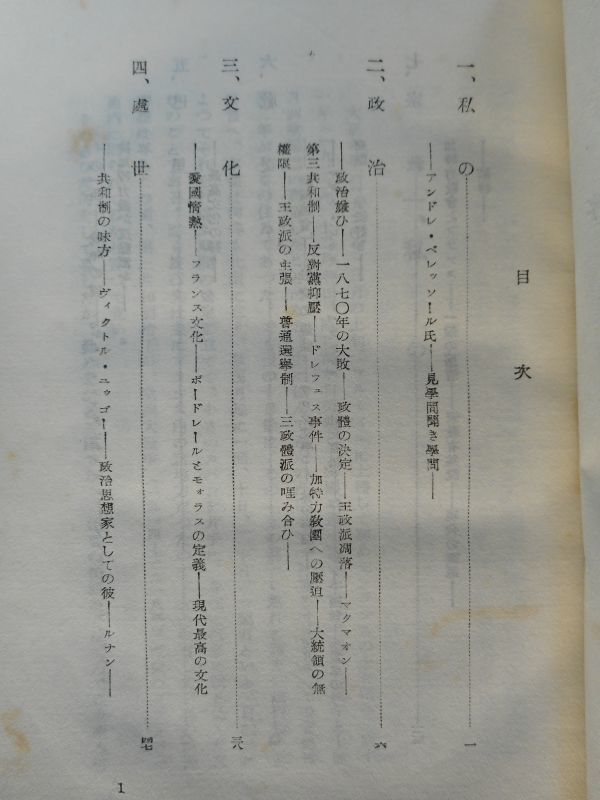 目次
一、私の……一
——アンドレ・ベレッソール氏——見學問聞き學問——
二、政治……六
——政治嫌ひ——一八七〇年の大敗——政體の決定——王政派凋落——マクマオン——
第三共和制——反對黨抑壓——ドレフュス事件——加特力敎團への壓迫——大統領の無
權限——王政派の主張——普通選擧制——三政體派の啀み合ひ——
三、文化……三八
——愛國情熱——フランス文化——ボードレールとモォラスの定義——現代最高の文化
四、處世……四七
——共和制の味方——ヴィクトル・ユゥゴー——政治思想家としての彼——ルナン——
1